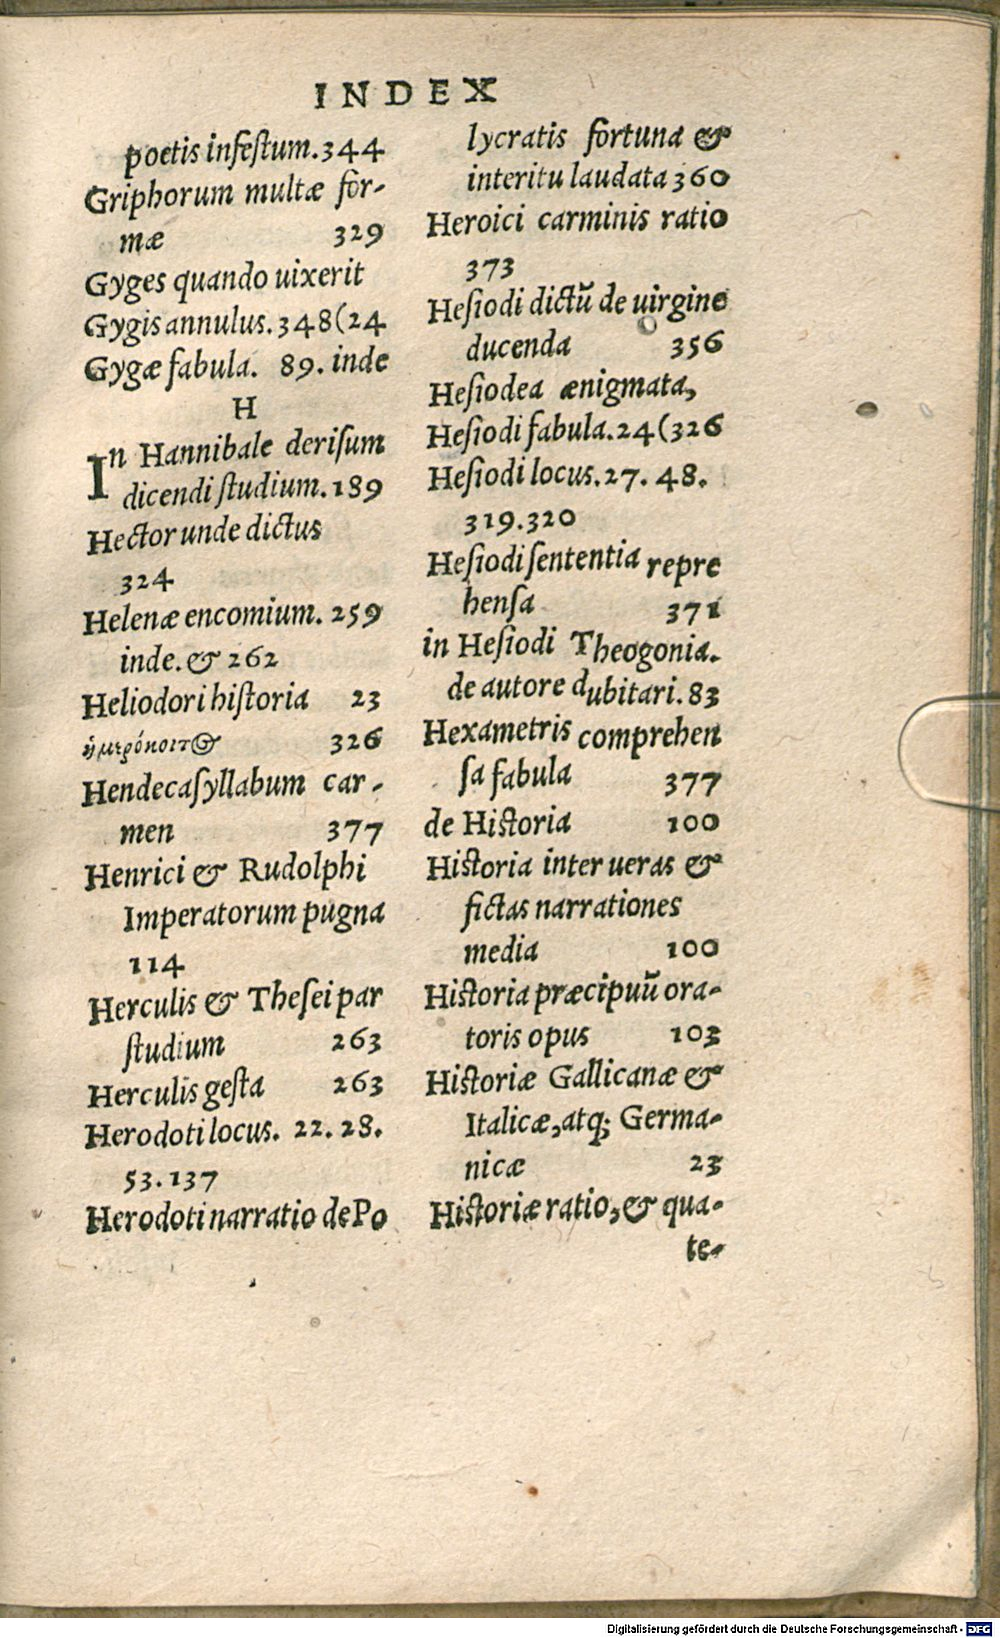 INDEX
poetis infeſtum. 344
Griphorum multæ for-
mæ 329
Gyges quando uixerit
Gygis annulus. 348 (24
Gygæ fabula. 89. inde
H
In Hannibale deriſum
dicendi ſtudium. 189
Hector unde dictus
324
Helenæ encomium. 259
inde. & 262
Heliodori hiſtoria 23
ἡμερόκοιτος 326
Hendecaſyllabum car-
men 377
Henrici & Rudolphi
Imperatorum pugna
114
Herculis & Theſei par
ſtudium 263
Herculis geſta 263
Herodoti locus. 22. 28.
53. 137
Herodoti narratio de Po
lycratis fortuna &
interitu laudata 360
Heroici carminis ratio
373
Heſiodi dictū de uirgine
ducenda 356
Heſiodea ænigmata,
Heſiodi fabula. 24 (326
Heſiodi locus. 27. 48.
319. 320
Heſiodi ſententia repre
henſa 371
in Heſiodi Theogonia.
de autore dubitari. 83
Hexametris comprehen
ſa fabula 377
de Hiſtoria 100
Hiſtoria inter ueras &
fictas narrationes
media 100
Hiſtoria præcipuū ora-
toris opus 103
Hiſtoriæ Gallicanæ &
Italicæ, atq; Germa-
nicæ 23
Hiſtoriæ ratio, & qua-
te-
Digitalisierung gefördert durch die Deutsche Forschungsgemeinschaft - DFG